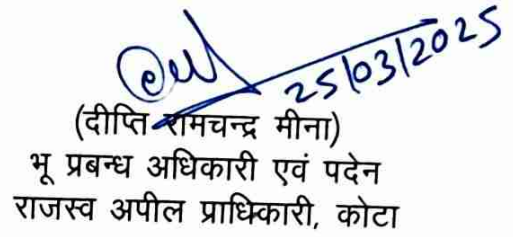 25/03/2025
(दीप्ति रामचन्द्र मीना)
भू प्रबन्ध अधिकारी एवं पदेन
राजस्व अपील प्राधिकारी, कोटा